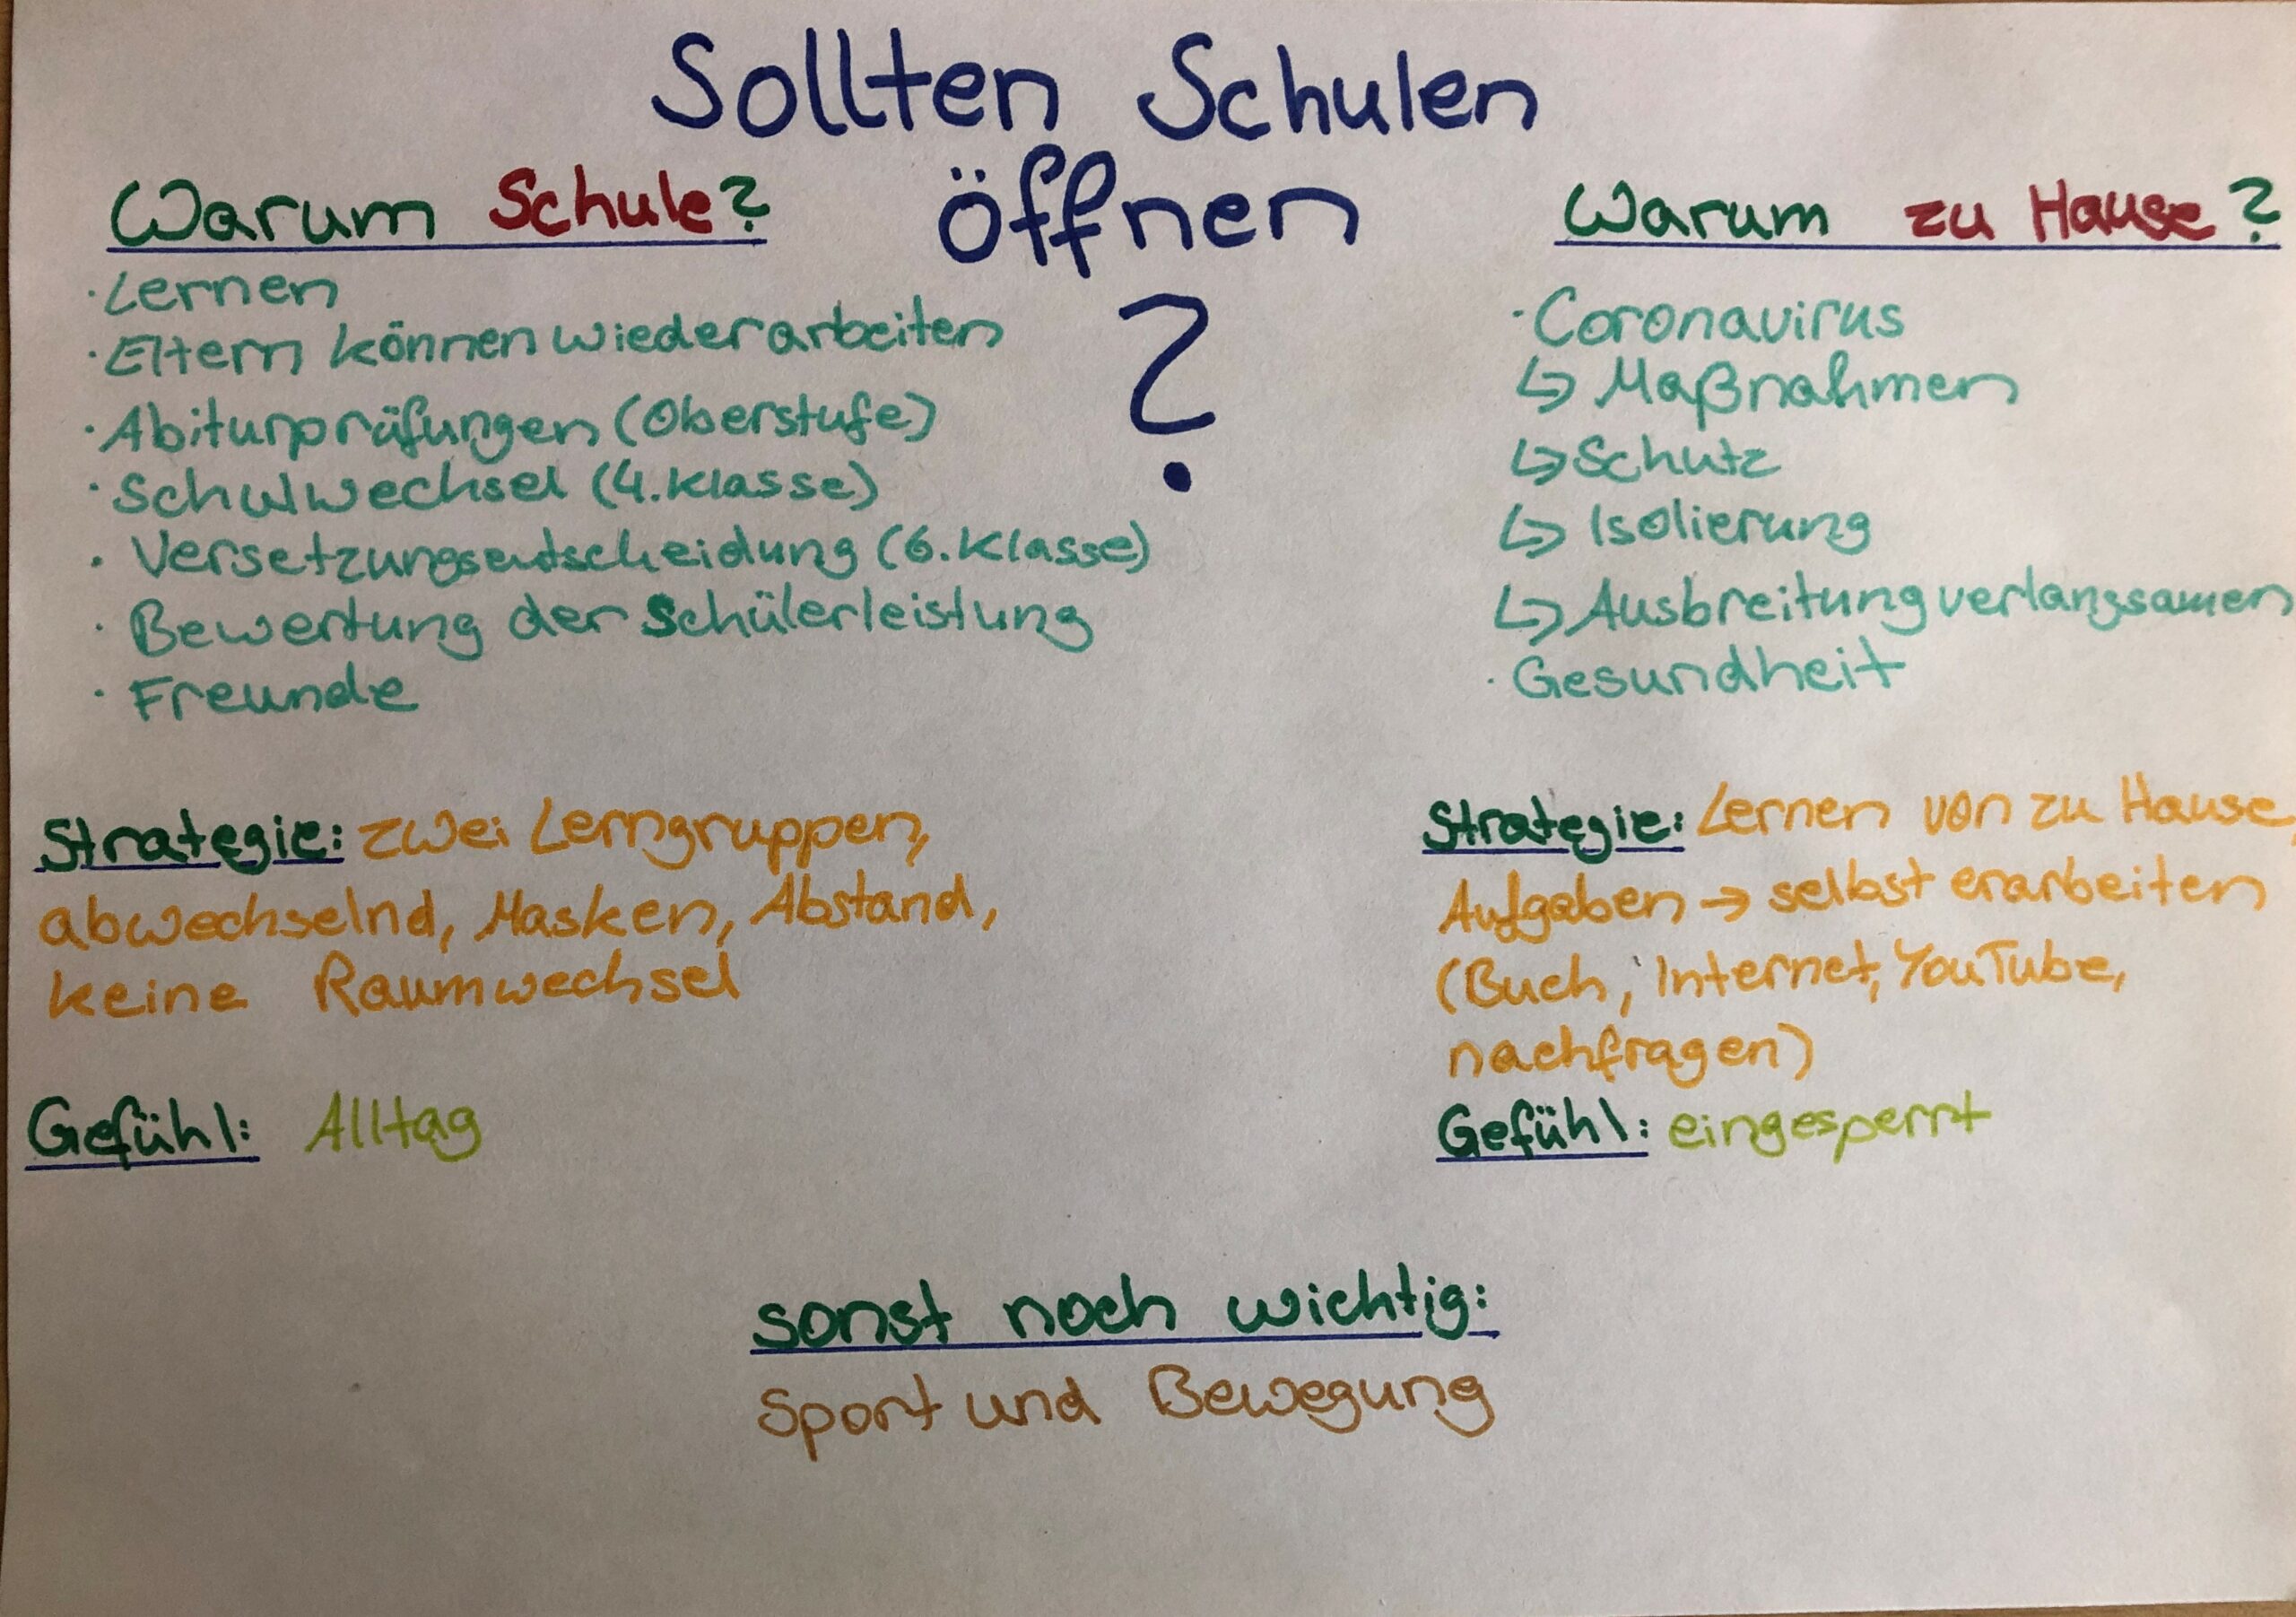 Sollten Schulen
öffnen
?
Warum Schule?
· Lernen
· Eltern können wieder arbeiten
· Abiturprüfungen (Oberstufe)
· Schulwechsel (4. Klasse)
· Versetzungsentscheidung (6. Klasse)
· Bewertung der Schülerleistung
· Freunde
Strategie: zwei Lerngruppen,
abwechselnd, Masken, Abstand,
keine Raumwechsel
Gefühl: Alltag
Warum zu Hause?
· Coronavirus
↳ Maßnahmen
↳ Schutz
↳ Isolierung
↳ Ausbreitung verlangsamen
· Gesundheit
Strategie: Lernen von zu Hause,
Aufgaben → selbst erarbeiten
(Buch, Internet, YouTube,
nachfragen)
Gefühl: eingesperrt
sonst noch wichtig:
Sport und Bewegung